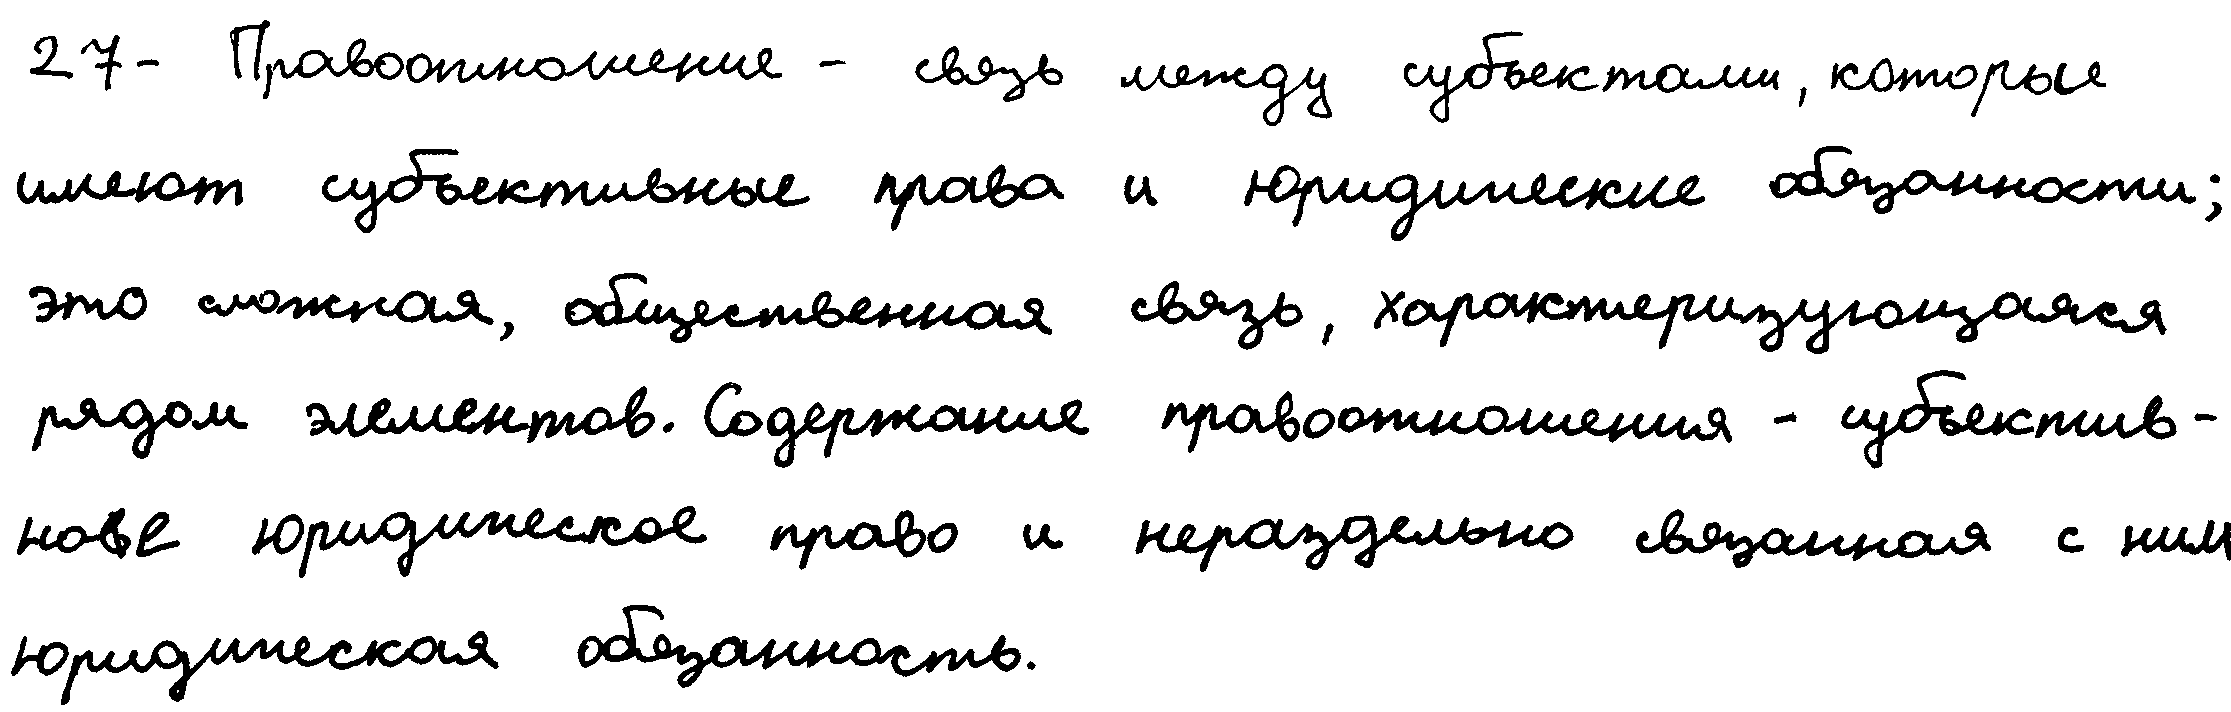 27- Правоотношение - связь между субъектами, которые
имеют субъективные права и юридические обязанности;
это сложная, общественная связь, характеризующаяся
рядом элементов. Содержание правоотношения - субъектив-
ное юридическое право и нераздельно связанная с ним
юридическая обязанность.